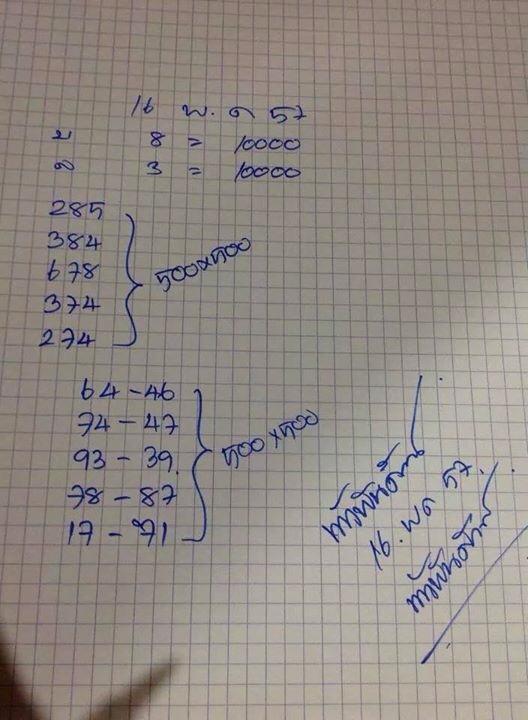 16 พ.ค 57
บ 8 = 10000
ล 3 = 10000
285
384
678
374
274
500x500
64-46
74-47
93-39
78-87
17-71
500x500
16. พค 57.